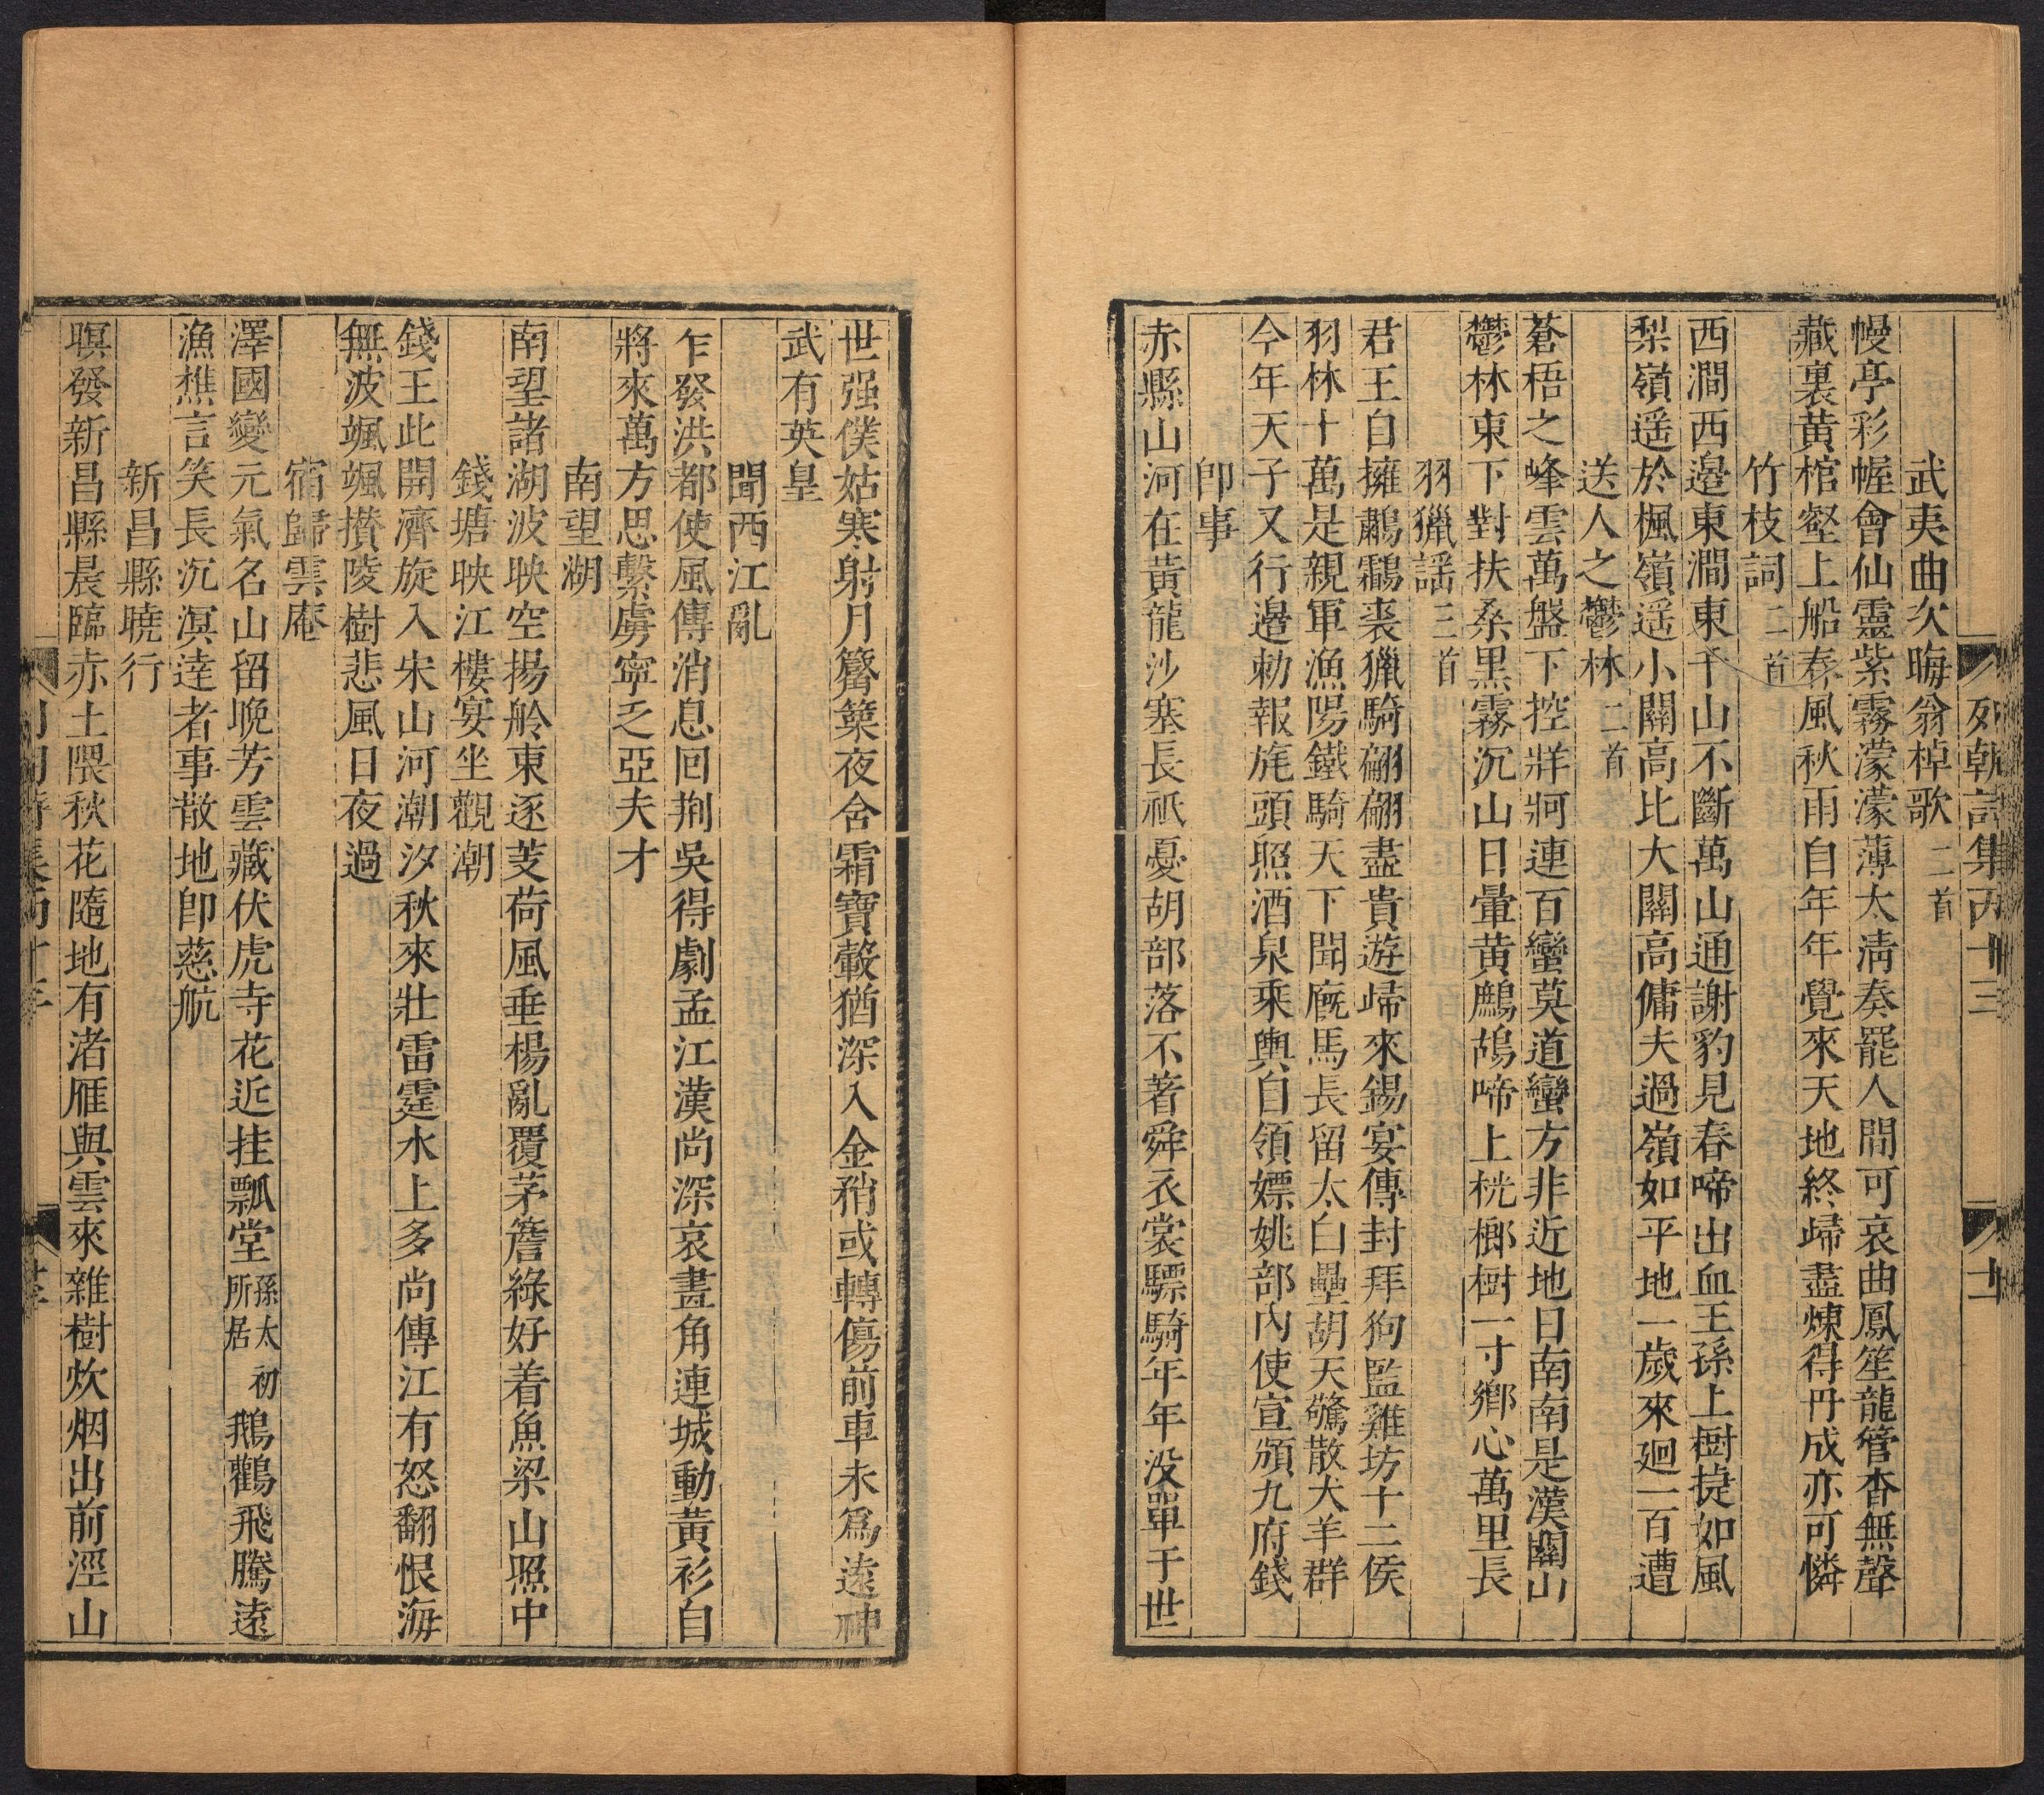 列朝詩集丙十三
十一
武夷曲次晦翁棹歌二首
幔亭彩幄會仙靈紫霧濛濛薄太清奏罷人間可哀曲鳳笙龍管杳無聲
藏裏黃棺壑上船春風秋雨自年年覺來天地終歸盡煉得丹成亦可憐
竹枝詞二首
西澗西邉東澗東千山不斷萬山通謝豹見春啼出血王孫上樹捷如風
梨嶺遥於楓嶺遥小關高比大關高傭夫過嶺如平地一歲來廻一百遭
送人之鬱林二首
蒼梧之峰雲萬盤下控牂牁連百蠻莫道蠻方非近地日南南是漢關山
鬱林東下對扶桑黑霧沉山日暈黄鷓鴣啼上桄榔樹一寸鄉心萬里長
羽獵謡三首
君王自擁鷫鸘裘獵騎翩翩盡貴遊歸來錫宴傳封拜狗監雞坊十二侯
羽林十萬是親軍漁陽鐵騎天下聞廐馬長留太白壘胡天驚散犬羊群
今年天子又行邉勅報旄頭照酒泉乘輿自領嫖姚部內使宣頒九府錢
卽事
赤縣山河在黃龍沙塞長祇憂胡部落不著舜衣裳驃騎年年没單于世
世强僕姑寒射月簥篥夜含霜寶轂猶深入金矟或轉傷前車未爲遠神
武有英皇
聞西江亂
乍發洪都使風傳消息回荆吳得劇孟江漢尚深哀晝角連城動黃衫自
將來萬方思繫虜寧乏亞夫才
南望湖
南望諸湖波映空揚舲東逐芰荷風垂楊亂覆茅簷綠好着魚梁山照中
錢塘映江樓宴坐觀潮
錢王此開濟旋入宋山河潮汐秋來壯雷霆水上多尚傳江有怒翻恨海
無波颯颯攢陵樹悲風日夜過
宿歸雲庵
澤國變元氣名山留晩芳雲藏伏虎寺花近挂瓢堂孫太初所居鵝鸛飛騰遠
漁樵言笑長沉溟逹者事散地卽慈航
新昌縣曉行
暝發新昌縣晨臨赤土隈秋花隨地有渚雁與雲來雜樹炊烟出前溼山